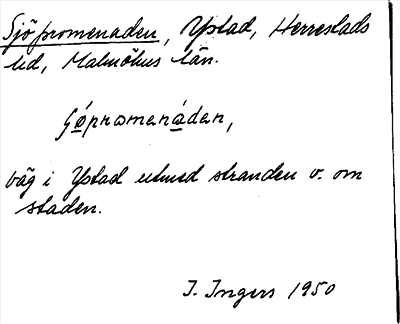 Sjöpromenaden, Ystad, Herrestads
hd, Malmöhus län.
väg i Ystad utmed stranden v. om
staden.
I. Ingers 1950